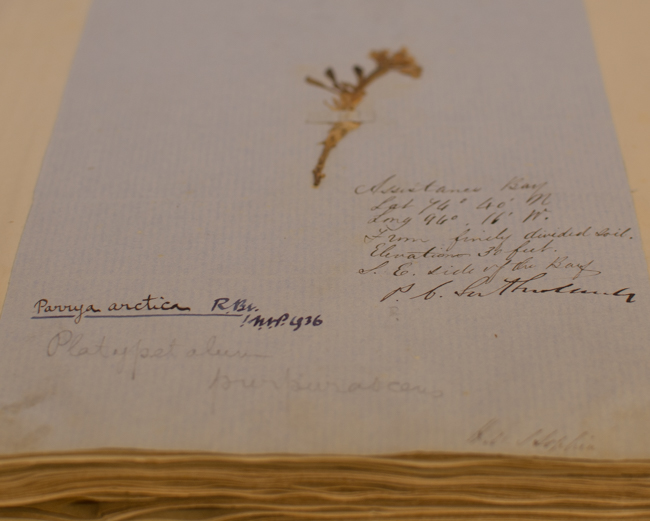 Assistance Bay
Lat 74° 40' N
Long 94° 16' W.
From finely divided soil.
Elevation 30 feet.
S. E. side of the Bay
P. C. Sutherland
Parrya arctica R.Br.
! N.P. 1936
Platypetalum
purpurascens